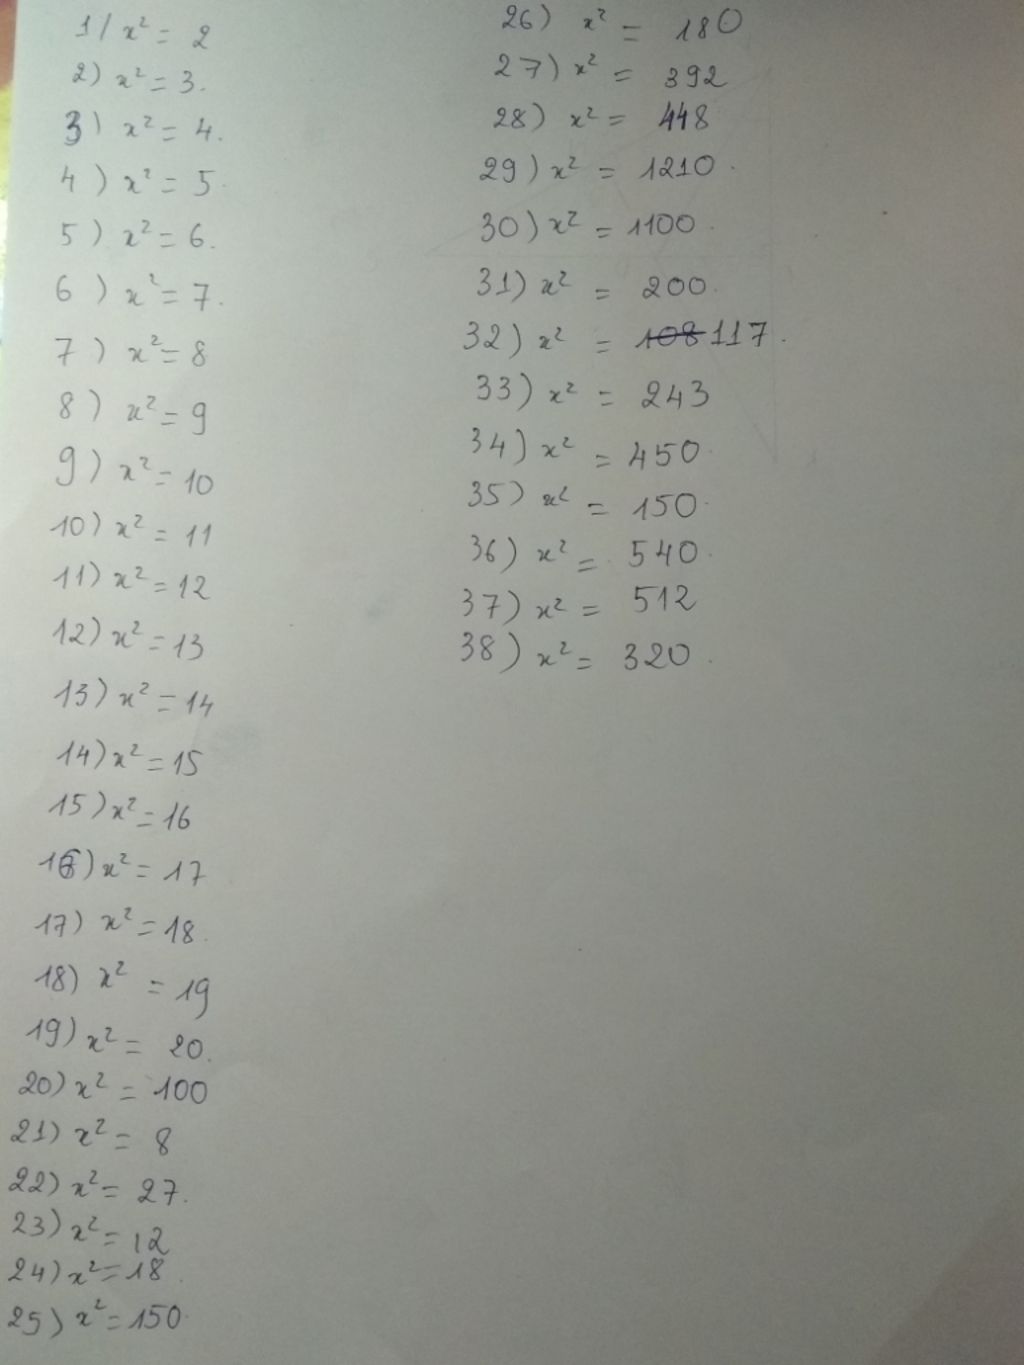 1/ x² = 2
2) x² = 3.
3) x² = 4.
4) x² = 5.
5) x² = 6.
6) x² = 7.
7) x² = 8
8) x² = 9
9) x² = 10
10) x² = 11
11) x² = 12
12) x² = 13
13) x² = 14
14) x² = 15
15) x² = 16
16) x² = 17
17) x² = 18.
18) x² = 19
19) x² = 20.
20) x² = 100
21) x² = 8
22) x² = 27.
23) x² = 12
24) x² = 18.
25) x² = 150.
26) x² = 180
27) x² = 392
28) x² = 448
29) x² = 1210.
30) x² = 1100.
31) x² = 200.
32) x² = 108 117.
33) x² = 243
34) x² = 450.
35) x² = 150.
36) x² = 540.
37) x² = 512
38) x² = 320.